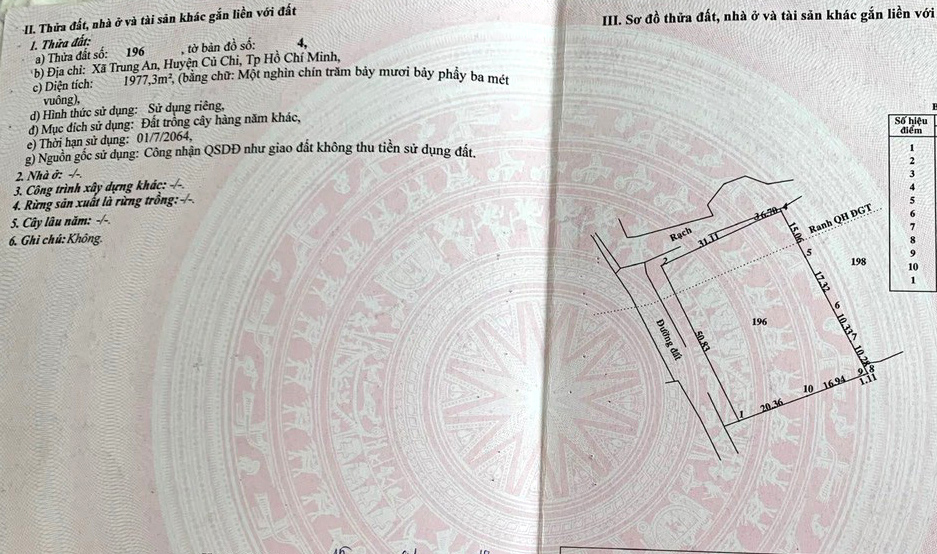 II. Thửa đất, nhà ở và tài sản khác gắn liền với đất
1. Thửa đất:
a) Thửa đất số: 196 , tờ bản đồ số: 4,
b) Địa chỉ: Xã Trung An, Huyện Củ Chi, Tp Hồ Chí Minh,
c) Diện tích: 1977,3m², (bằng chữ: Một nghìn chín trăm bảy mươi bảy phẩy ba mét
vuông),
d) Hình thức sử dụng: Sử dụng riêng,
đ) Mục đích sử dụng: Đất trồng cây hàng năm khác,
e) Thời hạn sử dụng: 01/7/2064,
g) Nguồn gốc sử dụng: Công nhận QSDĐ như giao đất không thu tiền sử dụng đất.
2. Nhà ở: -/-.
3. Công trình xây dựng khác: -/-.
4. Rừng sản xuất là rừng trồng: -/-.
5. Cây lâu năm: -/-.
6. Ghi chú: Không.
III. Sơ đồ thửa đất, nhà ở và tài sản khác gắn liền với
Số hiệu
điểm
1
2
3
4
5
6
7
8
9
10
1
Rạch
Ranh QH ĐGT
Đường đất
2
31.11
4
15.06
5
198
17.32
6
10.33
10.28
196
50.83
9
8
1.11
16.94
10
20.36
1